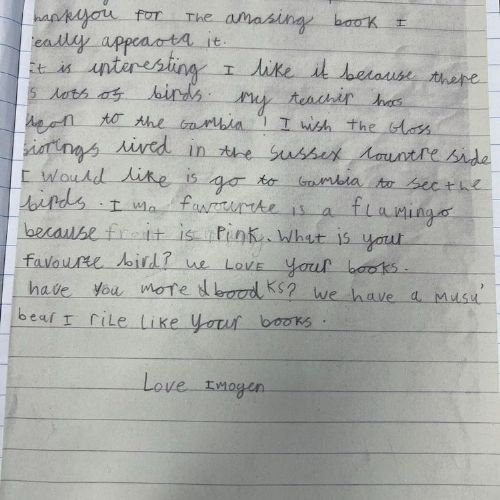 hankyou for The amazing book I
eally appeaota it.
It is interesting I like it because there
s lots of birds. My teachir has
to the Gambia! I wish the Gloss
lived in the Sussex countre side
I would like is go to Gambia to see the
birds. I ma favourite is a flamingo
because it is pink. What is your
favourte bird? we Love your books.
have you more books? we have a musu'
bear I rile like your books.
Love Imogen